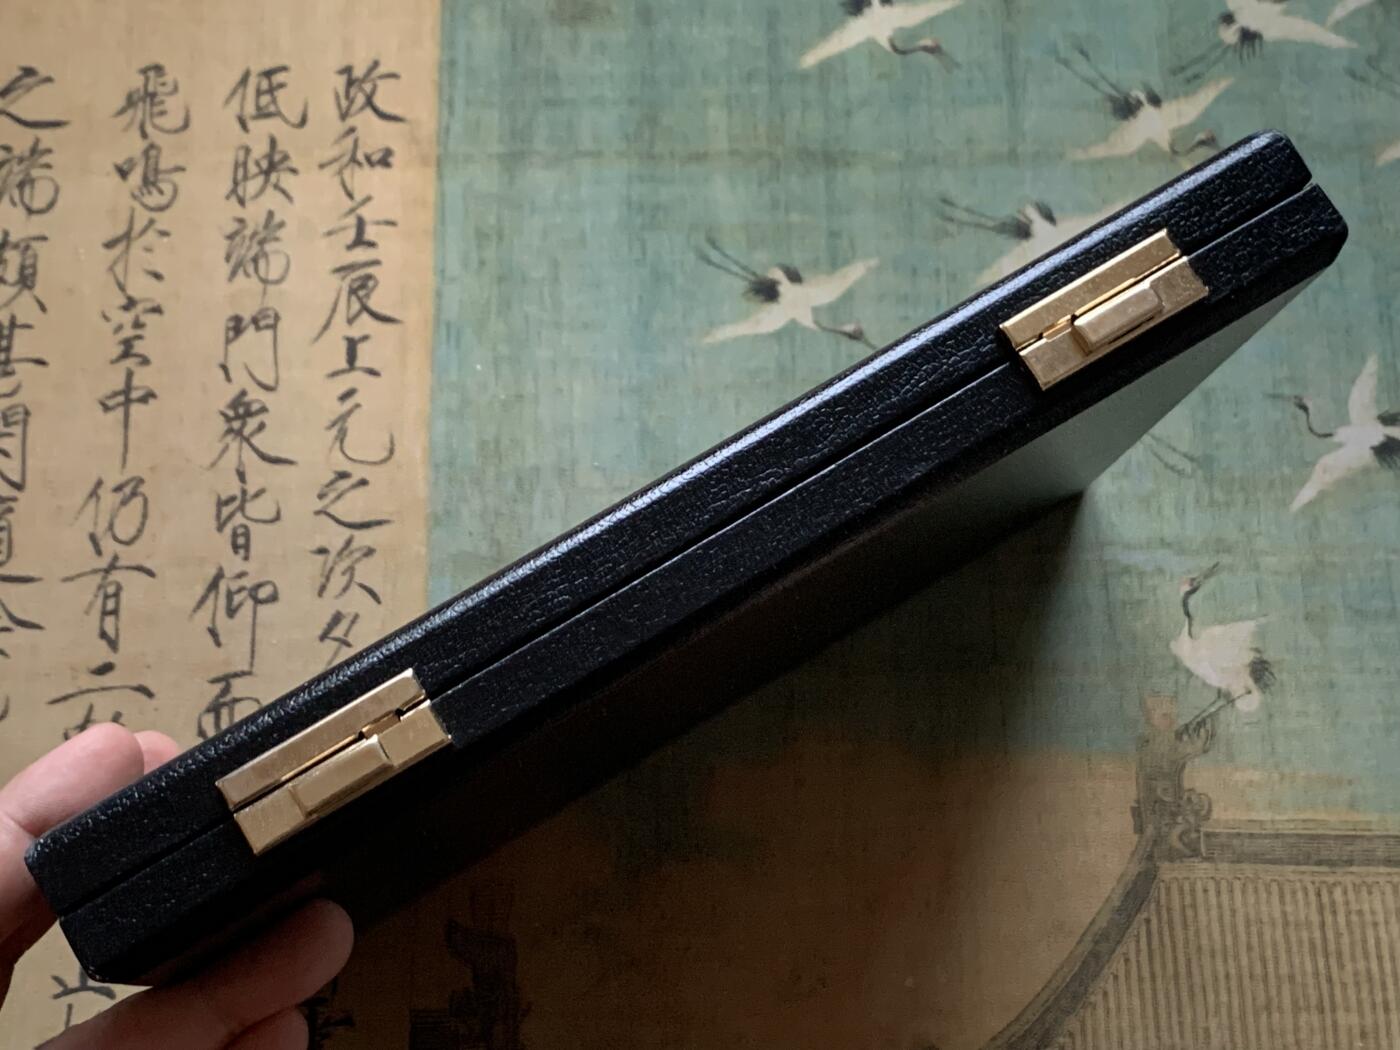 政和壬辰上元之次夕
低映端門衆皆仰而
飛鳴於空中仍有二
之端頗甚閒適